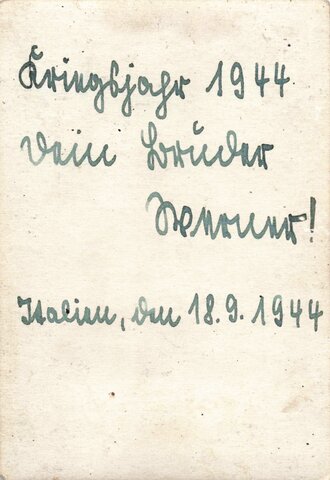 Kriegsjahr 1944.
Dein Bruder
Werner!
Italien, den 18.9.1944